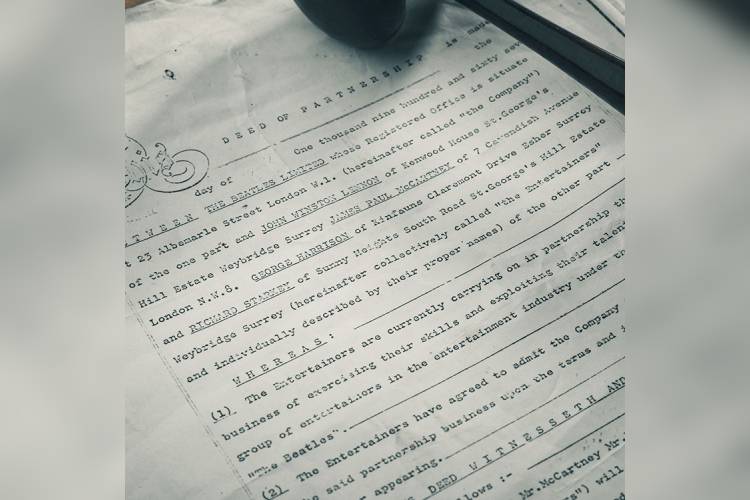 DEED OF PARTNERSHIP is made
the
day of One thousand nine hundred and sixty sev
BETWEEN THE BEATLES LIMITED whose Registered Office is situate
t 23 Albemarle Street London W.1. (hereinafter called "the Company")
of the one part and JOHN WINSTON LENNON of Kenwood House St.George's
Hill Estate Weybridge Surrey JAMES PAUL McCARTNEY of 7 Cavendish Avenue
London N.W.8. GEORGE HARRISON of Kinfauns Claremont Drive Esher Surrey
and RICHARD STARKEY of Sunny Heights South Road St.George's Hill Estate
Weybridge Surrey (hereinafter collectively called "the Entertainers"
and individually described by their proper names) of the other part
WHEREAS:
(1) The Entertainers are currently carrying on in partnership th
business of exercising their skills and exploiting their talen
group of entertainers in the entertainment industry under th
"The Beatles".
(2) The Entertainers have agreed to admit the Company
he said partnership business upon the terms and
r appearing.
DEED WITNESSETH AND
llows :-
Mr.McCartney Mr.
") will